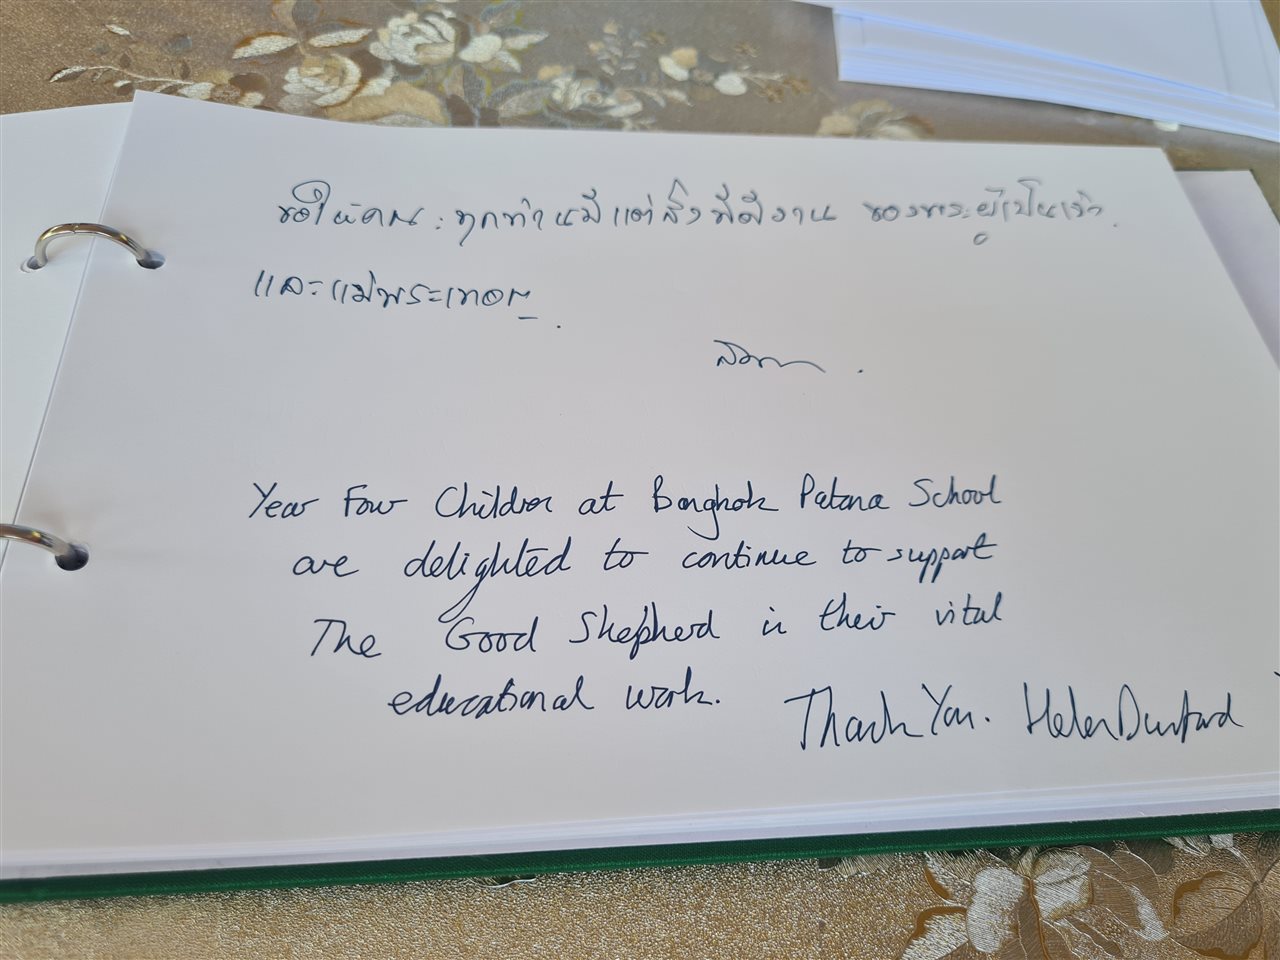 ขอให้คณะทุกท่านมีแต่สิ่งที่ดีงาม ของพระผู้เป็นเจ้า
และแม่พระเทอญ.
Year Four Children at Bangkok Patana School
are delighted to continue to support
The Good Shepherd in their vital
educational work.
Thank You. Helen